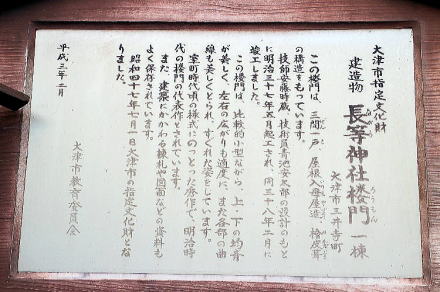 大津市指定文化財
建造物 長等神社楼門 一棟
ろうもん
大津市三井寺町
この楼門は、三間一戸、屋根入母屋造、檜皮葺
の構造をもっています。
技師安藤時蔵、技術員青池安太郎の設計のもと
に明治三十七年五月起工され、同三十八年二月に
竣工しました。
この楼門は、比較的小型ながら、上・下の均斉
が美しく、左右の広がりも適度に、また各部の曲
線も美しくとられ、すぐれた姿をしています。
室町時代頃の様式にのっとった秀作で、明治時
代の楼門の代表作とされています。
また、建築にかかわる棟札や図面などの資料も
よく保存されています。
昭和四十七年七月一日大津市の指定文化財とな
りました。
平成三年二月
大津市教育委員会